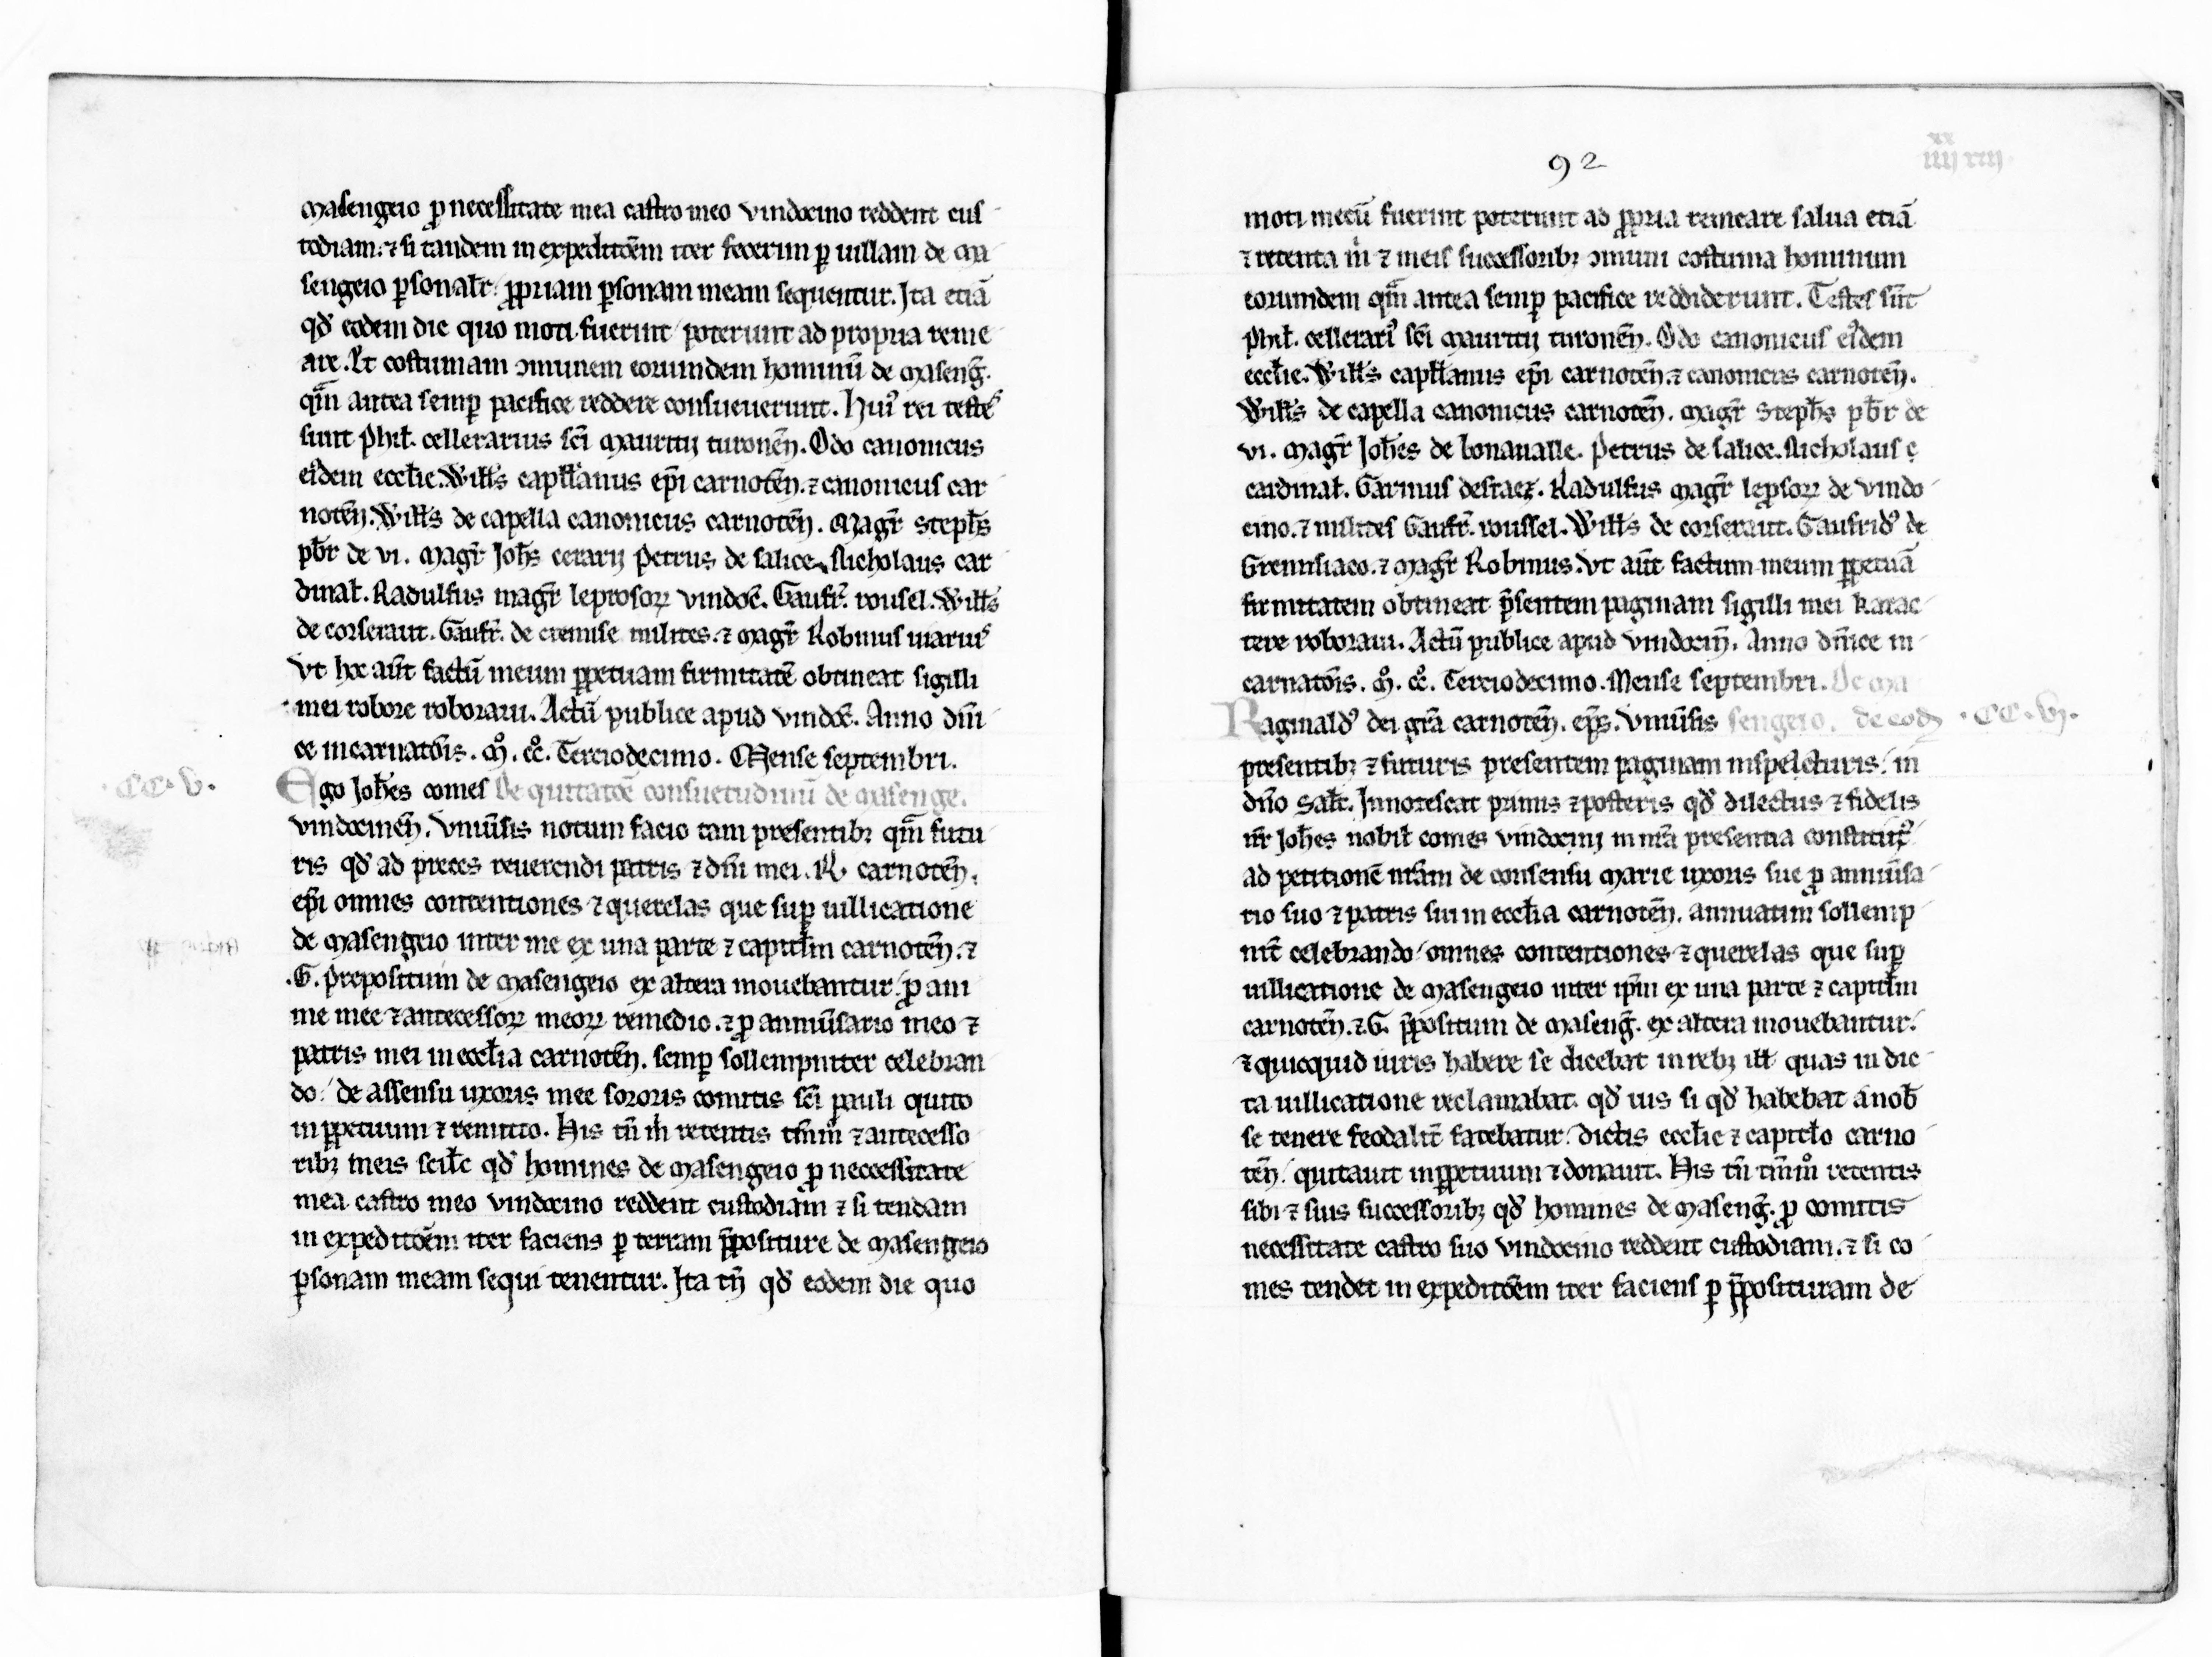 masengeio ꝓ necessitate mea castro meo vindocino reddent cus
todiam. ⁊ si tandem in expeditōem iter fecerim ꝑ uillam de ma
sengeio ꝑsonalr̄. ꝓpriam ꝑsonam meam sequentur. Ita etiā
qd̄ eodem die quo moti fuerint poterunt ad propria reme
are. Et costumam ɔmunem eorumdem hominū de maseng̃.
qm̄ antea semꝑ pacifice reddere consueuerunt. Huiꝰ rei testes
sunt phil̄. cellerarius sc̄i mauritij turonen̄. Odo canonicus
eiꝰdem eccl̄ie. Will̄s capll̄anus ep̄i carnoten̄. ⁊ canonicus car
noten̄. Will̄s de capella canonicus carnoten̄. Magr̄ steph̄s
pb̄r de vi. magr̄ Joh̄s cerarij petrus de salice. Nicholaus car
dinal̄. Radulfus magr̄ leprosoꝝ vindoc̄. Gaufr̄. rousel. Will̄s
de corseraut. Gaufr̄. de cremise milites. ⁊ magr̄ Robinus mariꝰ
Vt hoc aūt factū meum ꝑpetuam firmitatē obtineat sigilli
mei robore roboraui. Actū publice apud vindoc̄. Anno dn̄i
ce incarnatōis. mº. ccº. Terciodecimo. Mense septembri.
.CC.V. Ego Joh̄es comes De quitatōe consuetudinū de masenge.
vindocinen̄. Vniūsis notum facio tam presentibꝫ qm̄ futu
ris qd̄ ad preces reuerendi patris ⁊ dn̄i mei .R. carnoten̄.
ep̄i omnes contentiones ⁊ querelas que suꝑ uillicatione
de masengeio inter me ex una parte ⁊ capitl̄m carnoten̄. ⁊
.G. prepositum de masengeio ex altera mouebantur. ꝓ ani
me mee ⁊ antecessoꝝ meoꝝ remedio. ⁊ ꝓ anniūsario meo ⁊
patris mei in eccl̄ia carnoten̄. semꝑ sollempniter celebran
do. de assensu uxoris mee sororis comitis sc̄i pauli quito
in ꝑpetuum ⁊ remitto. His tn̄ m̄ retentis tm̄mº ⁊ antecesso
ribꝫ meis scilc̄ qd̄ homines de masengeio ꝓ neccessitate
mea castro meo vindocino reddent custodiam ⁊ si tendam
in expeditōem iter faciens ꝑ terram p̄positure de masengeio
ꝑsonam meam sequi tenentur. Ita tn̄ qd̄ eodem die quo
92
xx
iiij xij
moti mecū fuerint poterunt ad ꝓpria remeare salua etiā
⁊ retenta m̄ ⁊ meis successoribꝫ ɔmuni costuma hominum
eorumdem qm̄ antea semꝑ pacifice reddiderunt. Testes sūt
phil̄. cellerariꝰ sc̄i mauritij turonen̄. Odo canonicus eiꝰdem
eccl̄ie. Will̄s capll̄anus ep̄i carnoten̄. ⁊ canonicus carnoten̄.
Will̄s de capella canonicus carnoten̄. magr̄ steph̄s pb̄r de
vi. magr̄ Joh̄es de bonaualle. petrus de salice. Nicholaus
cardinal̄. Garinus destraez. Radulfus magr̄ lep̄soꝝ de vindo
cino. ⁊ milites Gaufr̄. roussel. Will̄s de corseraut. Gaufridꝰ de
Gremsiaco. ⁊ magr̄ Robinus. Vt aūt factum meum ꝑpetuā
firmitatem obtineat p̄sentem paginam sigilli mei karac
tere roboraui. Actū publice apud vindocin̄. Anno dn̄ice in
carnatōis. mº. ccº. Terciodecimo. Mense septembri. De ma
Raginaldꝰ dei gr̄a carnoten̄. ep̄s. Vniūsis sengeio. de eodē .CC.VJ.
presentibꝫ ⁊ futuris presentem paginam inspecturis. in
dn̄o Salt̄. Innotescat primis ⁊ posteris qd̄ dilectus ⁊ fidelis
nr̄ Joh̄es nobil̄ comes vindocinj in nr̄a presentia constitutꝰ
ad petitionē nr̄am de consensu marie uxoris sue ꝓ anniūsa
rio suo ⁊ patris sui in eccl̄ia carnoten̄. annuatim sollemp
nit̄ celebrando omnes contentiones ⁊ querelas que suꝑ
uillicatione de masengeio inter ip̄m ex una parte ⁊ capitl̄m
carnoten̄. ⁊ G. p̄positum de maseng̃. ex altera mouebantur.
⁊ quicquid iuris habere se dicebat in rebꝫ ill̄ quas in dic
ta uillicatione reclamabat. qd̄ ius si qd̄ habebat a nob̄
se tenere feodalit̄ fatebatur. dictis eccl̄ie ⁊ capitl̄o carno
ten̄. quitauit in ꝑpetuum ⁊ donauit. His tn̄ tm̄mº retentis
sibi ⁊ suis successoribꝫ qd̄ homines de maseng̃. ꝓ comitis
necessitate castro suo vindocino reddent custodiam. ⁊ si co
mes tendet in expeditōem iter faciens ꝑ p̄posituram de